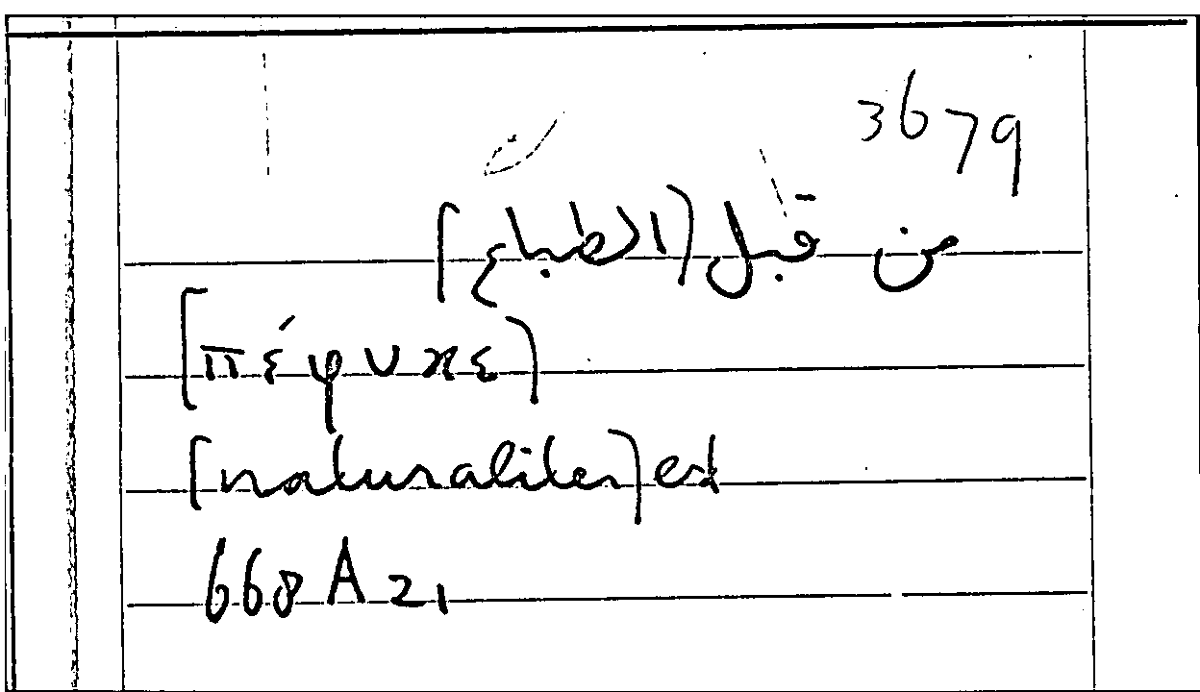 3679
من قبل [الطباع]
[πέφυκε]
[naturaliter] est
668 A 21